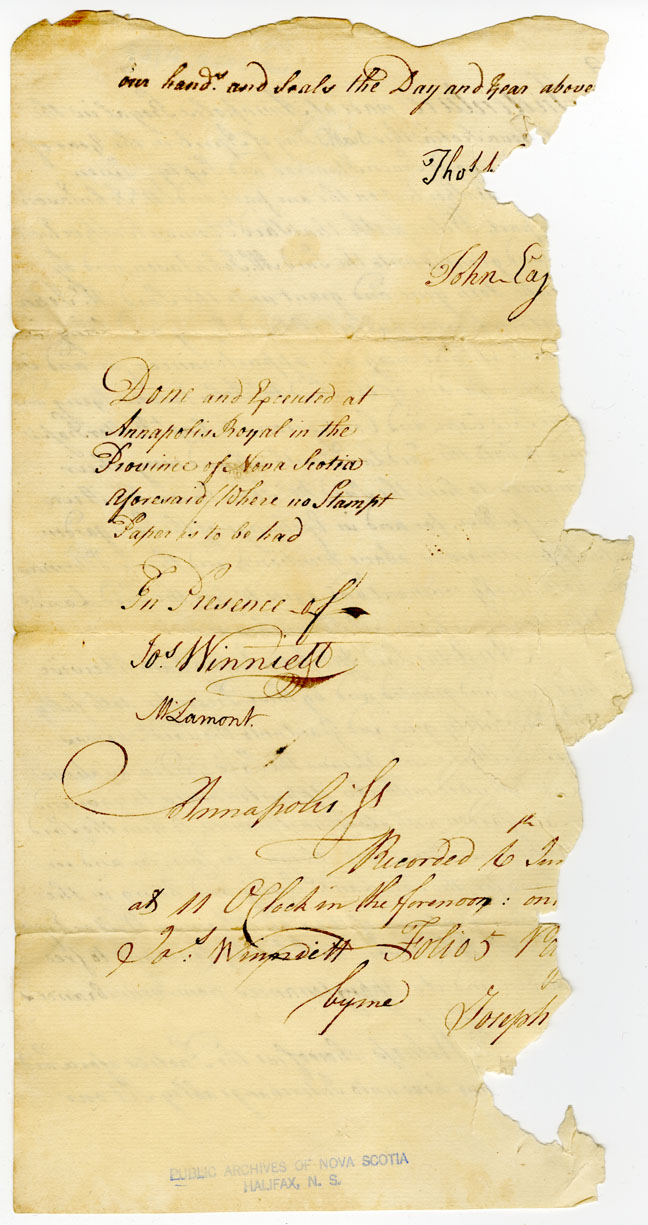 our hands. and Seals the Day and Year above
Thos
John Eag
Done and Executed at
Annapolis Royal in the
Province of Nova Scotia
aforesaid Where no Stampt
Paper is to be had
In Presence of
Jos. Winniett
M Lamont.
Annapolis Ss
Recorded 6th Jun
at 11 OClock in the forenoon: on
Jos. Winniett Folio 5
by me
Joseph
PUBLIC ARCHIVES OF NOVA SCOTIA
HALIFAX, N. S.